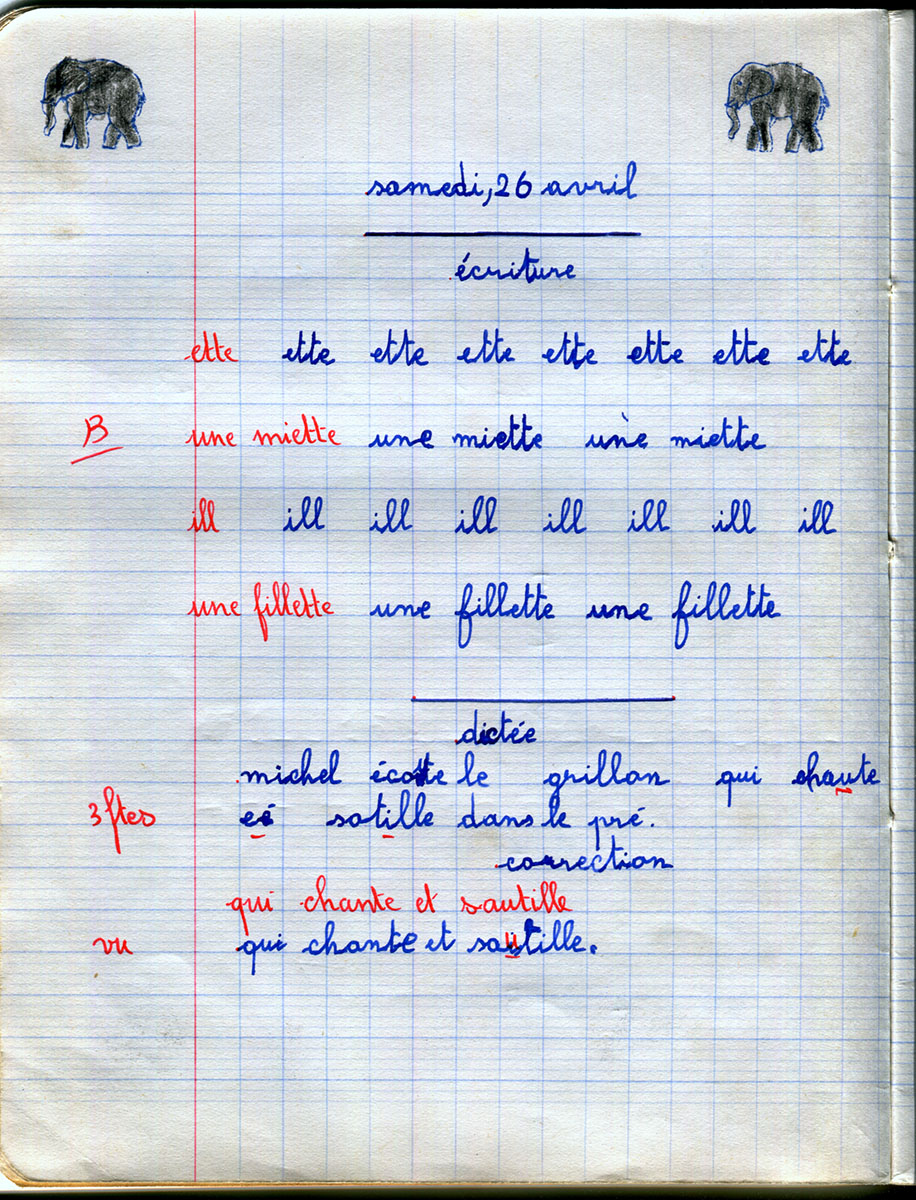 samedi, 26 avril
écriture
ette ette ette ette ette ette ette ette
B une miette une miette une miette
ill ill ill ill ill ill ill ill
une fillette une fillette une fillette
dictée
michel écoute le grillon qui chaute
3 ftes eé sotille dans le pré.
correction
qui chante et sautille
vu qui chante et sautille.